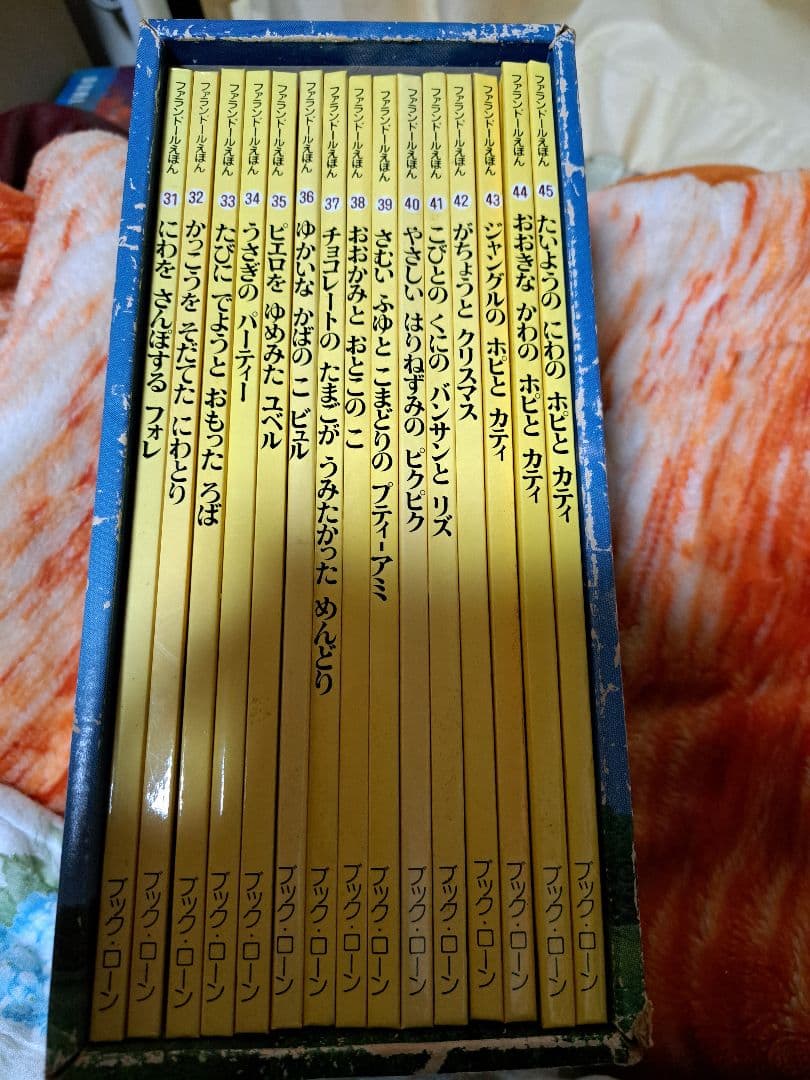 ファランドールえほん 31 にわを さんぽする フォレ ブック・ローン
ファランドールえほん 32 かっこうを そだてた にわとり ブック・ローン
ファランドールえほん 33 たびに でようと おもった ろば ブック・ローン
ファランドールえほん 34 うさぎの パーティー ブック・ローン
ファランドールえほん 35 ピエロを ゆめみた ユベル ブック・ローン
ファランドールえほん 36 ゆかいな かばの こ ビュル ブック・ローン
ファランドールえほん 37 チョコレートの たまごが うみたかった めんどり ブック・ローン
ファランドールえほん 38 おおかみと おとこの こ ブック・ローン
ファランドールえほん 39 さむい ふゆと こまどりの プティ-アミ ブック・ローン
ファランドールえほん 40 やさしい はりねずみの ピクピク ブック・ローン
ファランドールえほん 41 こびとの くにの バンサンと リズ ブック・ローン
ファランドールえほん 42 がちょうと クリスマス ブック・ローン
ファランドールえほん 43 ジャングルの ホピと カティ ブック・ローン
ファランドールえほん 44 おおきな かわの ホピと カティ ブック・ローン
ファランドールえほん 45 たいようの にわの ホピと カティ ブック・ローン